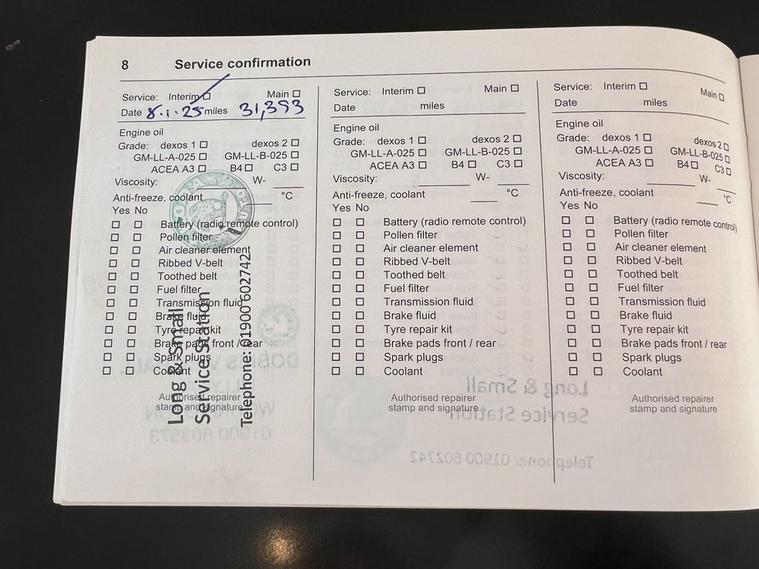 8 Service confirmation
Service: Interim Main
Date 8.1.25 miles 31,353
Engine oil
Grade: dexos 1 dexos 2
GM-LL-A-025 GM-LL-B-025
ACEA A3 B4 C3
Viscosity: W-
Anti-freeze, coolant °C
Yes No
Battery (radio remote control)
Pollen filter
Air cleaner element
Ribbed V-belt
Toothed belt
Fuel filter
Transmission fluid
Brake fluid
Tyre repair kit
Brake pads front / rear
Spark plugs
Coolant
Authorised repairer
stamp and signature
Long & Small
Service Station
Telephone: 01900 602742
Service: Interim Main
Date miles
Engine oil
Grade: dexos 1 dexos 2
GM-LL-A-025 GM-LL-B-025
ACEA A3 B4 C3
Viscosity: W-
Anti-freeze, coolant °C
Yes No
Battery (radio remote control)
Pollen filter
Air cleaner element
Ribbed V-belt
Toothed belt
Fuel filter
Transmission fluid
Brake fluid
Tyre repair kit
Brake pads front / rear
Spark plugs
Coolant
Authorised repairer
stamp and signature
Service: Interim Main
Date miles
Engine oil
Grade: dexos 1 dexos 2
GM-LL-A-025 GM-LL-B-025
ACEA A3 B4 C3
Viscosity: W-
Anti-freeze, coolant °C
Yes No
Battery (radio remote control)
Pollen filter
Air cleaner element
Ribbed V-belt
Toothed belt
Fuel filter
Transmission fluid
Brake fluid
Tyre repair kit
Brake pads front / rear
Spark plugs
Coolant
Authorised repairer
stamp and signature